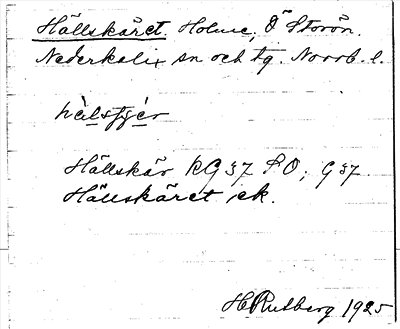 Hällskäret. Holme, Ö Storön.
Nederkalix sn och tg. Norrb. l.
Hällskär RG 37 SO; G 37
Hällskäret, ek.
H Rutberg 1925